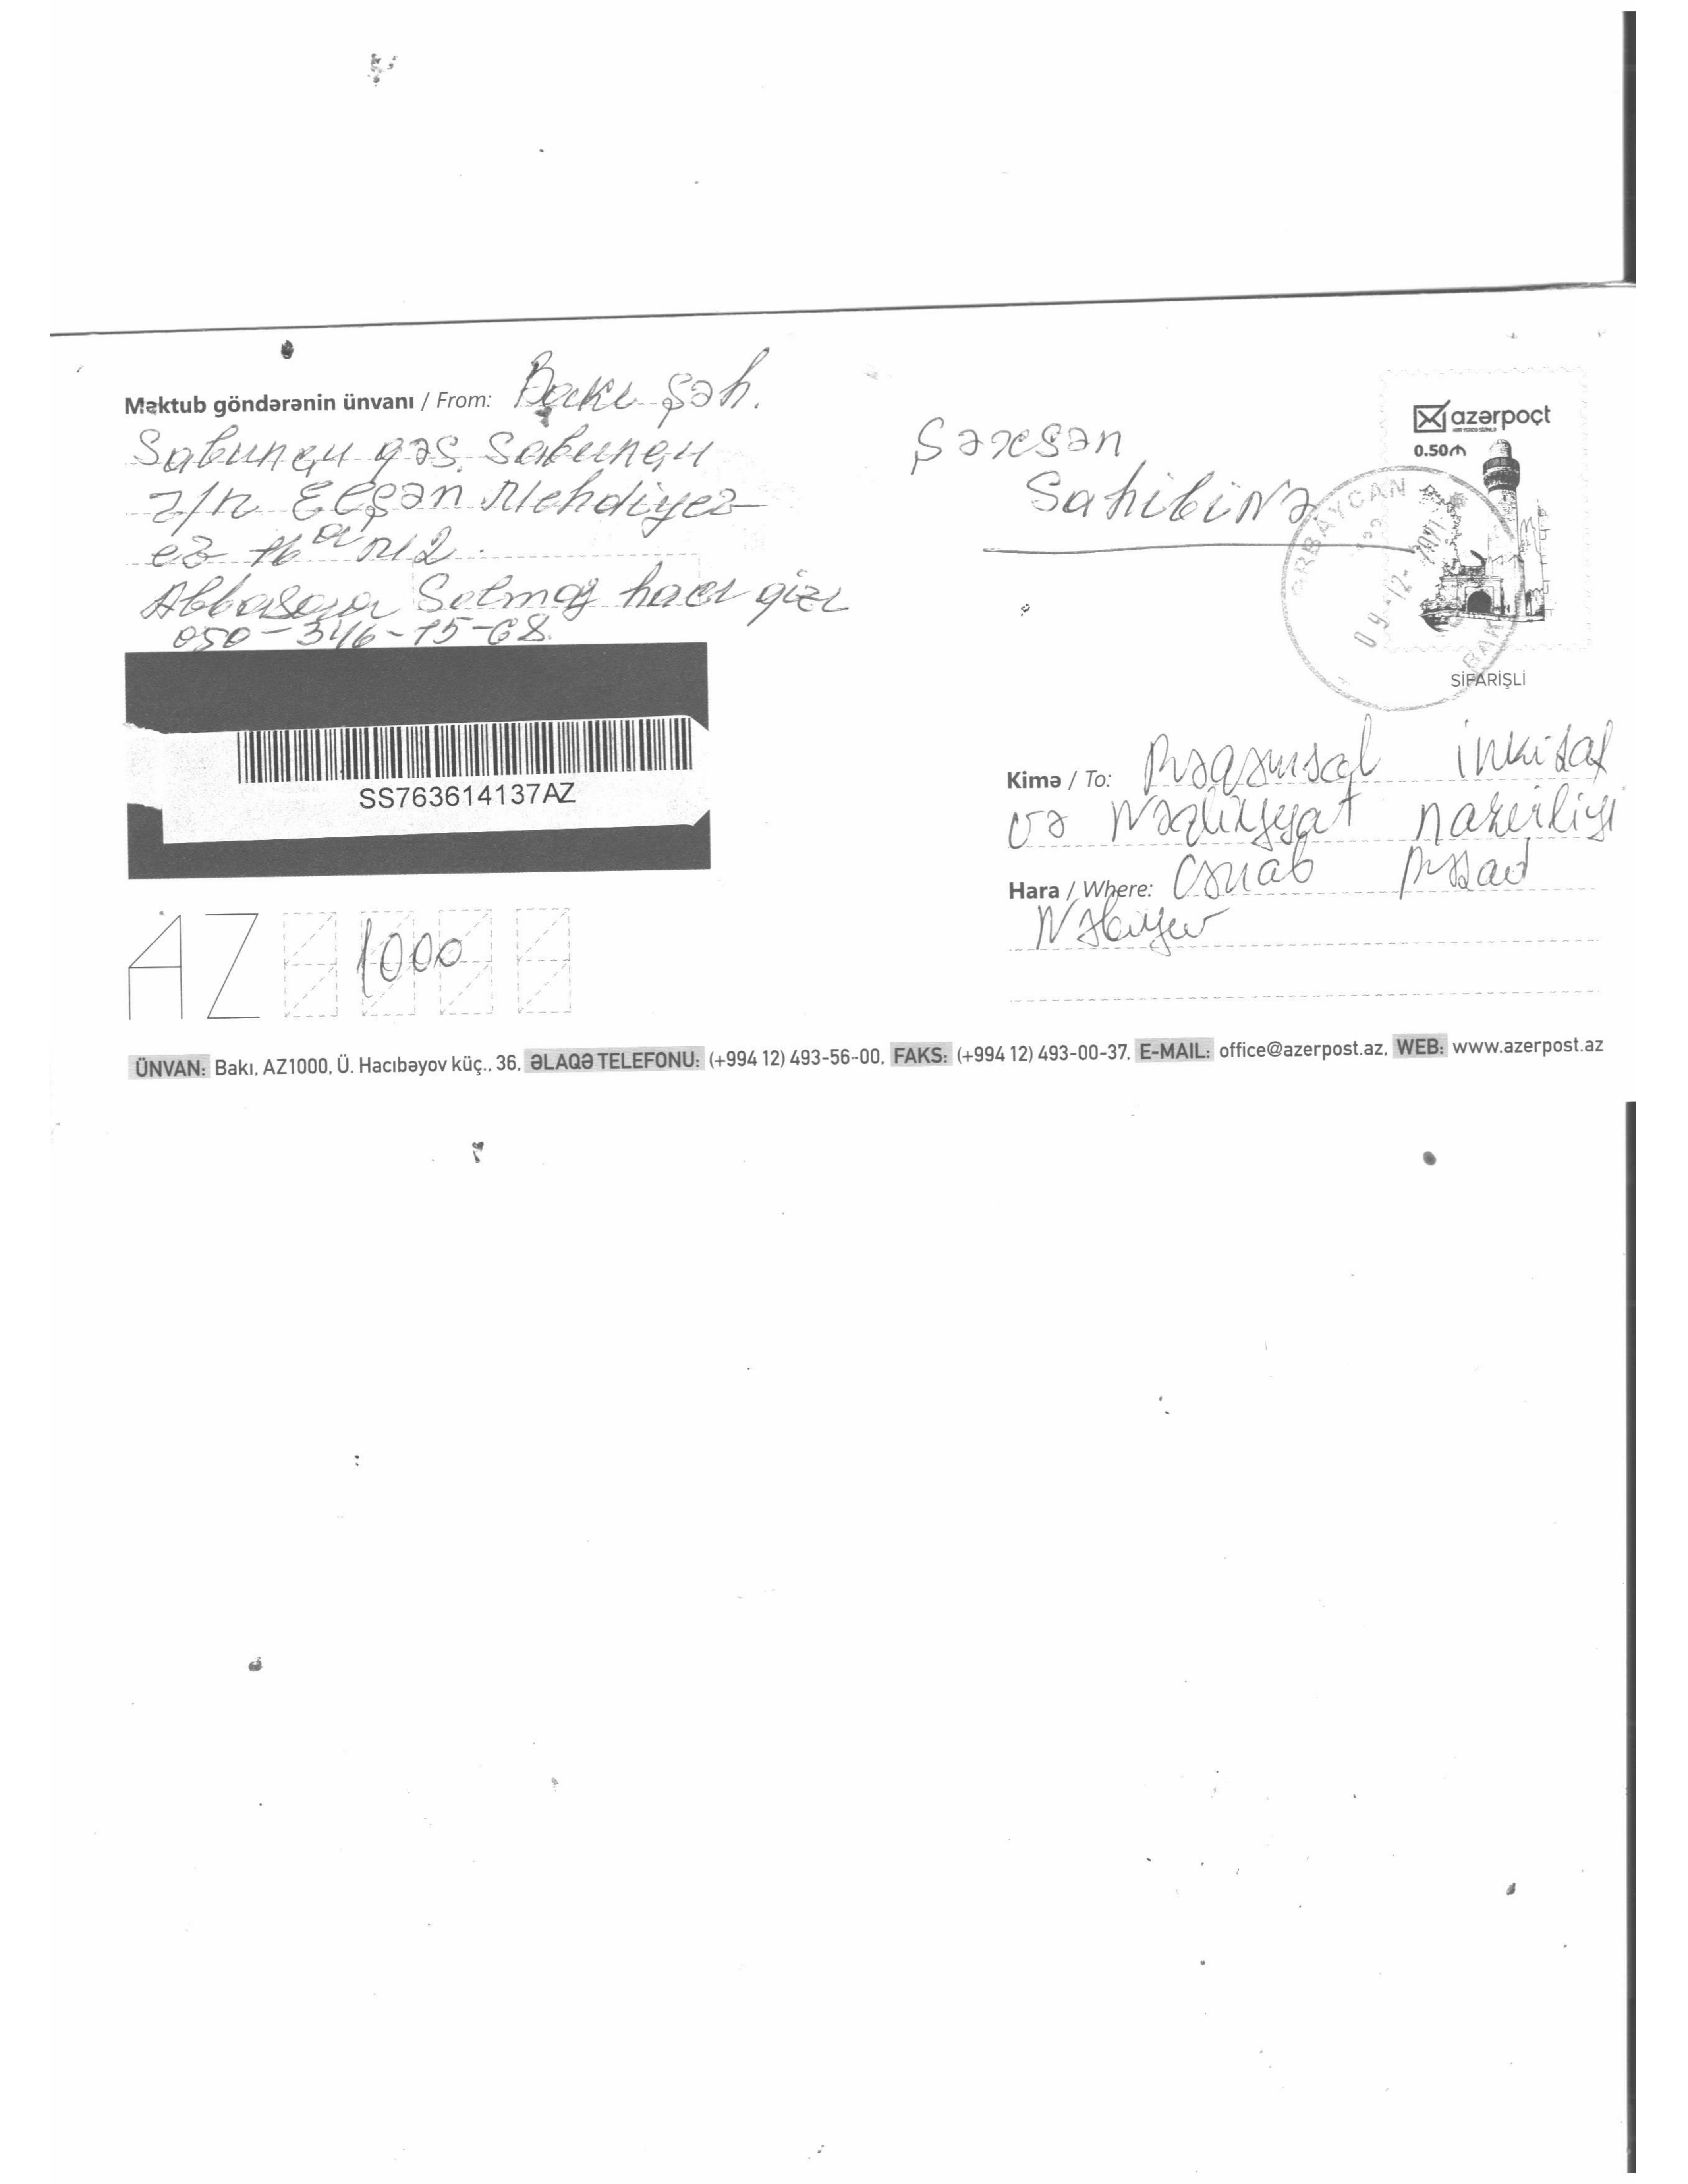 Məktub göndərənin ünvanı / From: Bakı şəh.
Sabunçu qəs. Sabunçu
Elşən Mehdiyev
ev 16 a m 2.
Abbasova Solmaz hacı qızı
050-346-75-68.
SS763614137AZ
AZ 1000
Şəxsən
Sahibinə
azərpoçt
0.50₼
AZƏRBAYCAN
09-12-
BAKI
SİFARİŞLİ
Kimə / To: Rəqəmsal inkişaf
və Nəqliyyat nazirliyi
Hara / Where: Cənab Rəşad
Nəbiyev
ÜNVAN: Bakı, AZ1000, Ü. Hacıbəyov küç., 36, ƏLAQƏ TELEFONU: (+994 12) 493-56-00, FAKS: (+994 12) 493-00-37, E-MAIL: office@azerpost.az, WEB: www.azerpost.az